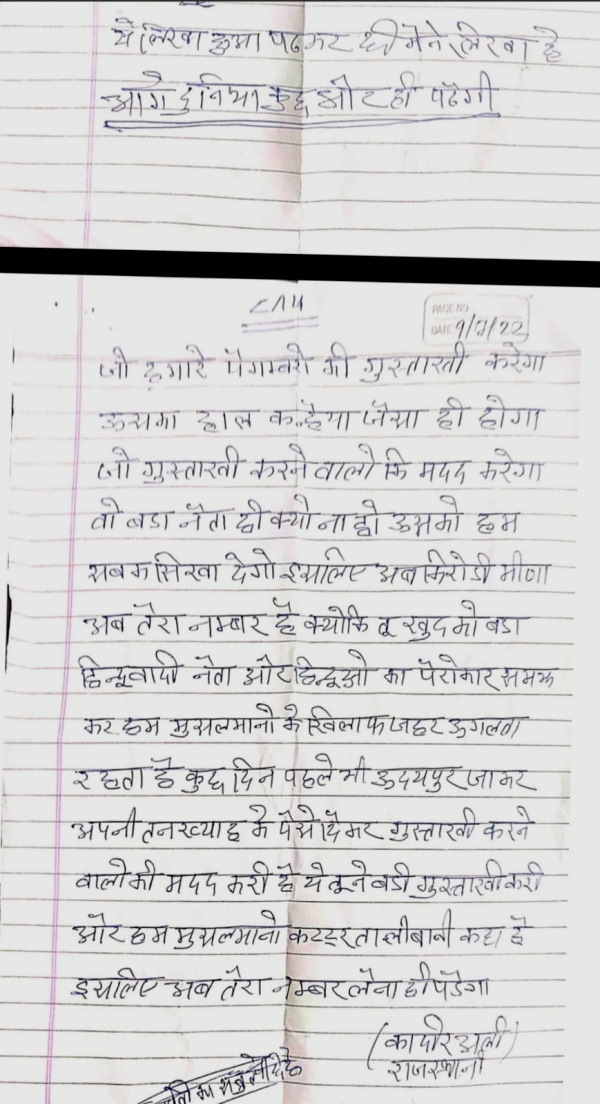 ये लिखा हुआ पढकर ही मैने लिखा है
आगे दुनिया कुछ ओर ही पढेगी
PAGE NO
DATE 9/7/22
जो हमारे पैगम्बरो की गुस्ताखी करेगा
ऊसका हाल कन्हैया जैसा ही होगा
जो गुस्ताखी करने वालो कि मदद करेगा
वो बडा नेता ही क्यो ना हो ऊसको हम
सबक सिखा देगो इसलिए अब किरोडी मीणा
अब तेरा नम्बर है क्योकि तू खुद को बडा
हिन्दूवादी नेता और हिन्दूओ का पैरोकार समझ
कर हम मुसलमानो के खिलाफ जहर ऊगलता
रहता है कुछ दिन पहले भी उदयपुर जाकर
अपनी तनख्याह के पैसे देकर गुस्ताखी करने
वालो की मदद करी है ये तूने बडी गुस्ताखी करी
और हम मुसलमानो कटटर तालीबानी कहा है
इसलिए अब तेरा नम्बर लेना ही पडेगा
(कादीर अली)
राजस्थानी